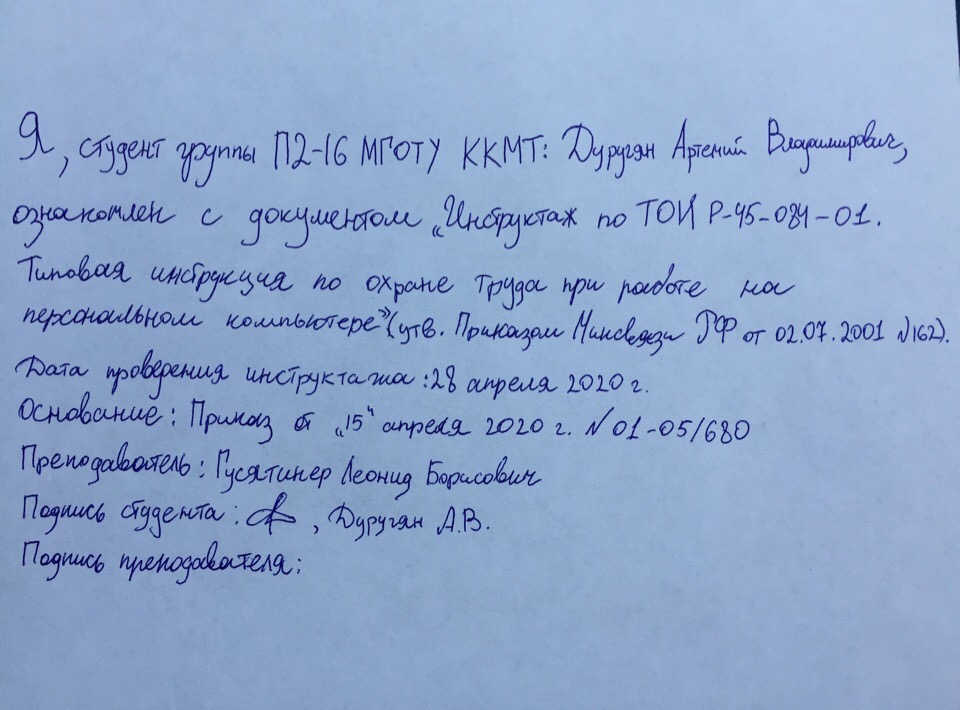 Я, студент группы П2-16 МГОТУ ККМТ: Дуругян Артемий Владимирович,
ознакомлен с документом „Инструктаж по ТОИ Р-45-084-01.
Типовая инструкция по охране труда при работе на
персональном компьютере”(утв. Приказом Минсвязи РФ от 02.07.2001 №162).
Дата проведения инструктажа: 28 апреля 2020 г.
Основание: Приказ от „15“ апреля 2020 г. №01-05/680
Преподаватель: Гусятинер Леонид Борисович
Подпись студента: , Дуругян А.В.
Подпись преподавателя: